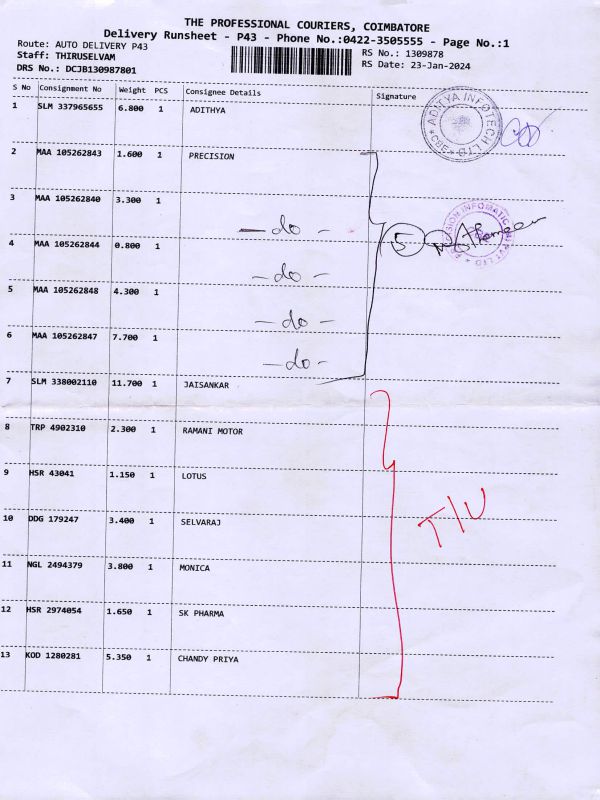 THE PROFESSIONAL COURIERS, COIMBATORE
Delivery Runsheet - P43 - Phone No.:0422-3505555 - Page No.:1
Route: AUTO DELIVERY P43
RS No.: 1309878
Staff: THIRUSELVAM
RS Date: 23-Jan-2024
DRS No.: DCJB130987801
S No Consignment No Weight PCS Consignee Details Signature
1 SLM 337965655 6.800 1 ADITHYA
ADITYA INFOTECH LTD
2 MAA 105262843 1.600 1 PRECISION
3 MAA 105262840 3.300 1
- do -
5
4 MAA 105262844 0.800 1
- do -
5 MAA 105262848 4.300 1
- do -
6 MAA 105262847 7.700 1
- do -
7 SLM 338002110 11.700 1 JAISANKAR
8 TRP 4902310 2.300 1 RAMANI MOTOR
9 HSR 43041 1.150 1 LOTUS
T/U
10 DDG 179247 3.400 1 SELVARAJ
11 NGL 2494379 3.800 1 MONICA
12 HSR 2974054 1.650 1 SK PHARMA
13 KOD 1280281 5.350 1 CHANDY PRIYA